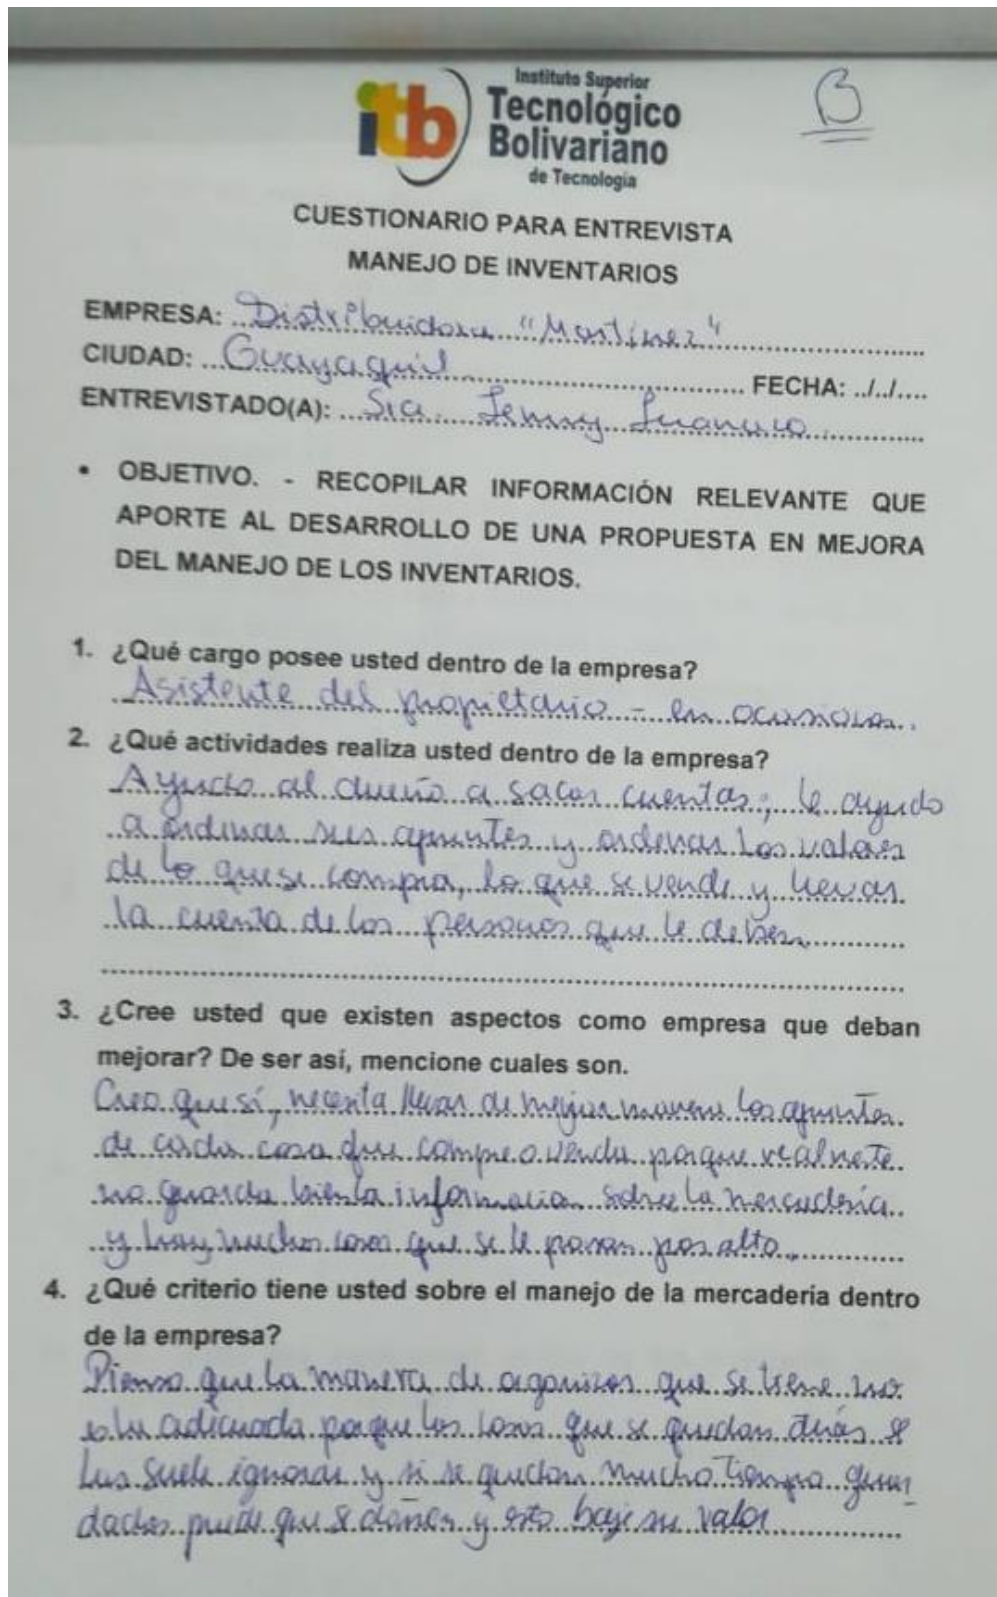 itb
Instituto Superior
Tecnológico
Bolivariano
de Tecnología
B
CUESTIONARIO PARA ENTREVISTA
MANEJO DE INVENTARIOS
EMPRESA: Distribuidora "Martínez"
CIUDAD: Guayaquil FECHA: ../../....
ENTREVISTADO(A): Sra. Jenny
• OBJETIVO. - RECOPILAR INFORMACIÓN RELEVANTE QUE
APORTE AL DESARROLLO DE UNA PROPUESTA EN MEJORA
DEL MANEJO DE LOS INVENTARIOS.
1. ¿Qué cargo posee usted dentro de la empresa?
Asistente del propietario - en ocasiones.
2. ¿Qué actividades realiza usted dentro de la empresa?
Ayudo al dueño a sacar cuentas, le ayudo
a ordenar sus apuntes y ordenar los valores
de lo que se compra, lo que se vende y llevar
la cuenta de las personas que le deben.
3. ¿Cree usted que existen aspectos como empresa que deban
mejorar? De ser así, mencione cuales son.
Creo que sí, necesita llevar de mejor manera los apuntes
de cada cosa que compre o venda porque realmente
no guarda bien la información sobre la mercadería
y hay muchas cosas que se le pasan por alto.
4. ¿Qué criterio tiene usted sobre el manejo de la mercadería dentro
de la empresa?
Pienso que la manera de organizar que se tiene no
es la adecuada porque las cosas que se quedan atrás se
las suele ignorar y si se quedan mucho tiempo guar-
dadas puede que se dañen y esto baje su valor